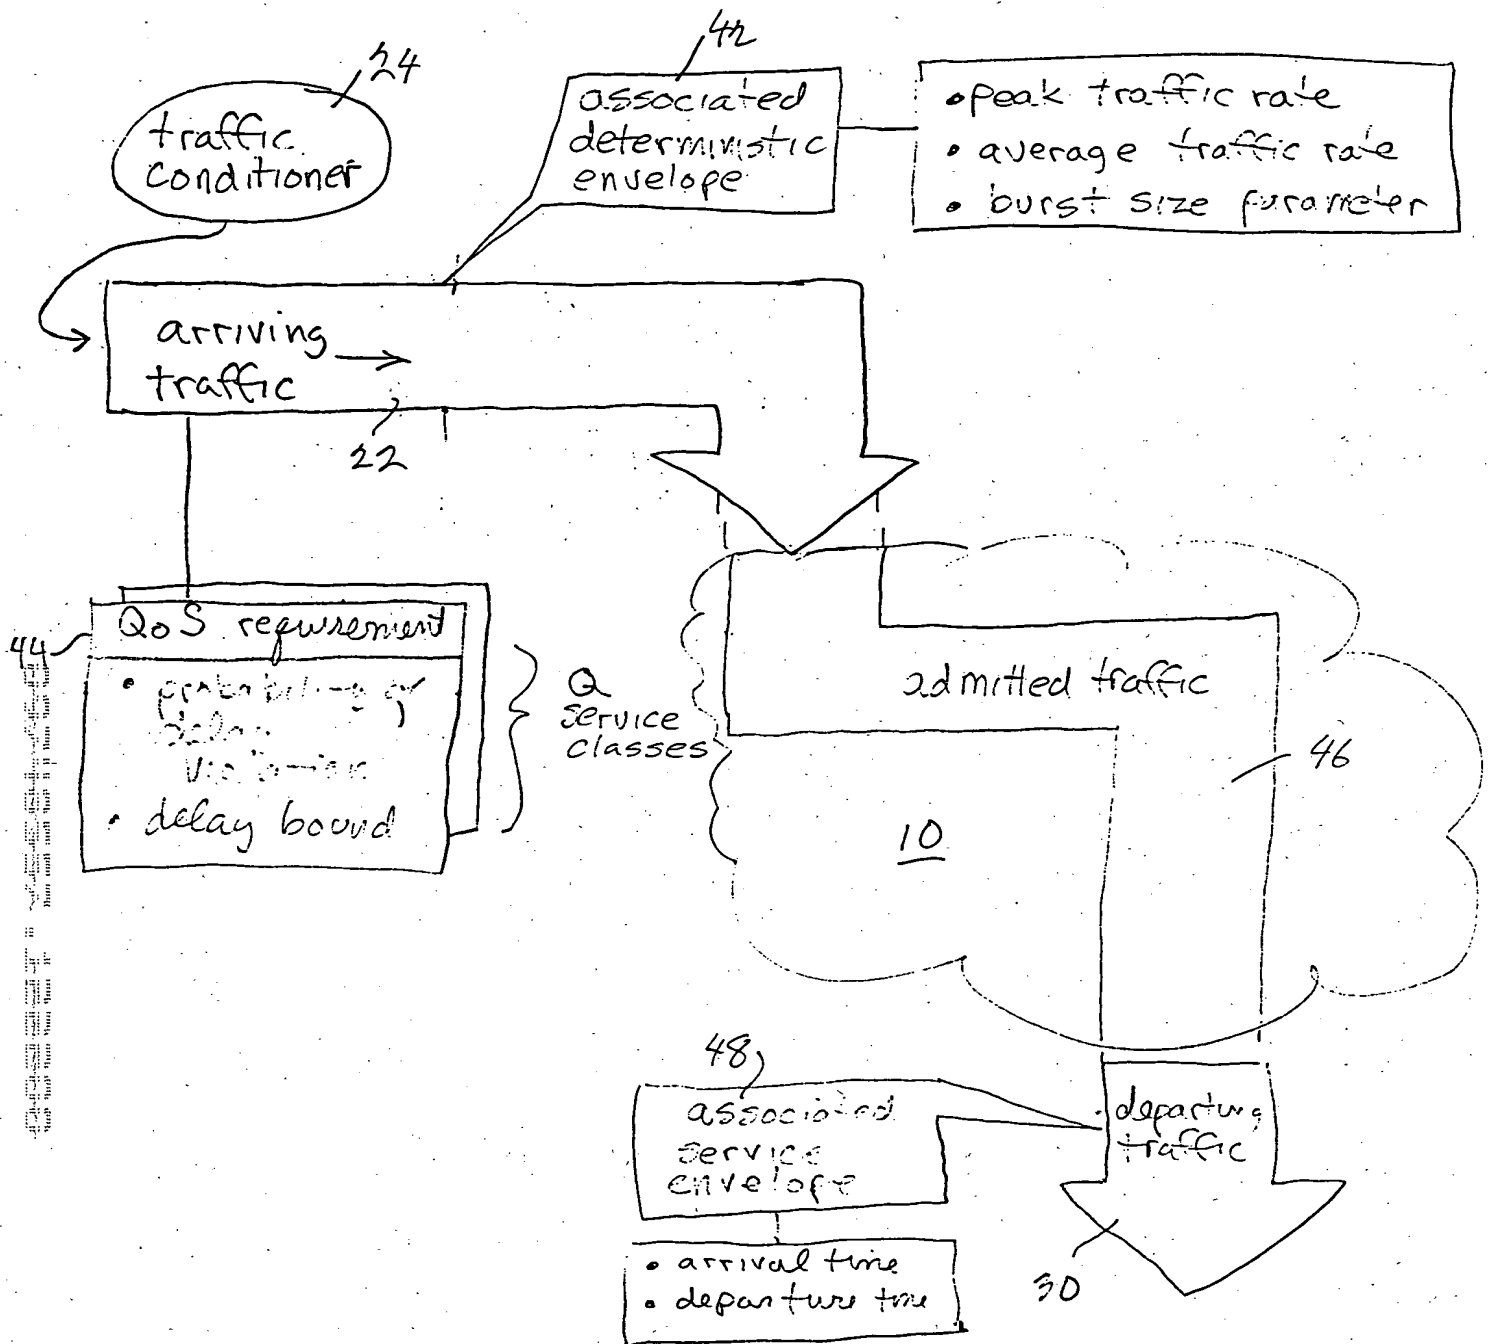 24
traffic
conditioner
42
associated
deterministic
envelope
• peak traffic rate
• average traffic rate
• burst size parameter
arriving
traffic
22
44
QoS requirement
• probability of
delay
violation
• delay bound
Q
service
classes
admitted traffic
46
10
48
associated
service
envelope
• arrival time
• departure time
departing
traffic
30